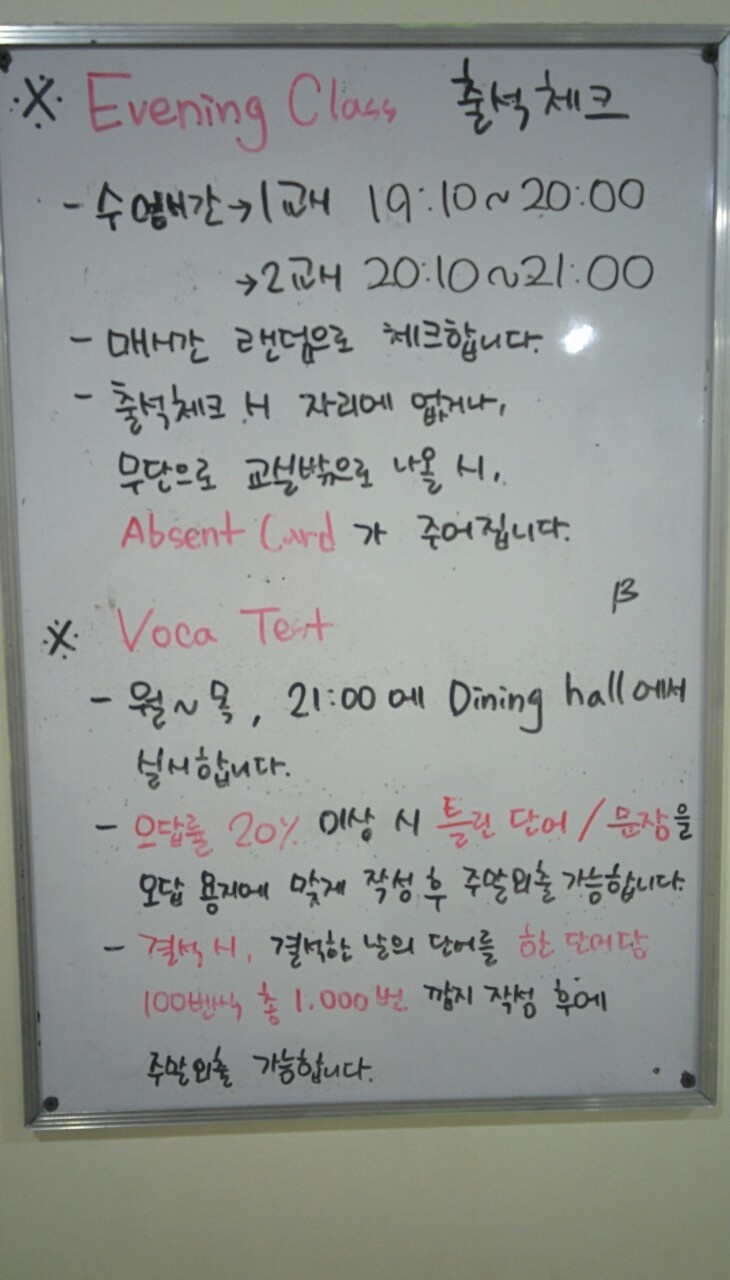 ※ Evening Class 출석체크
- 수업시간→1교시 19:10~20:00
→2교시 20:10~21:00
- 매시간 랜덤으로 체크합니다.
- 출석체크 시 자리에 없거나,
무단으로 교실밖으로 나올 시,
Absent Card 가 주어집니다.
β
※ Voca Test
- 월~목, 21:00에 Dining hall에서
실시합니다.
- 오답률 20% 이상 시 틀린 단어/문장을
오답 용지에 맞게 작성 후 주말외출 가능합니다.
- 결석 시, 결석한 날의 단어를 한 단어당
100번씩 총 1.000번 깜지 작성 후에
주말외출 가능합니다.